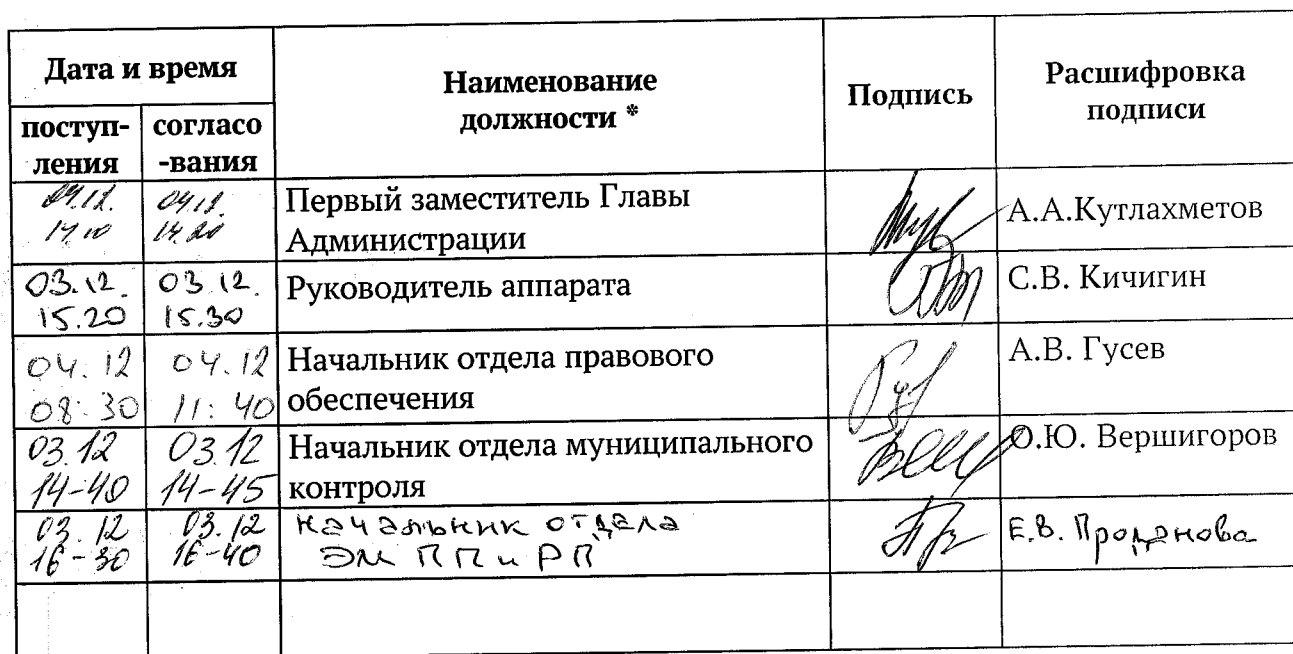 Дата и время
Наименование
должности *
Подпись
Расшифровка
подписи
поступ-
ления
согласо
-вания
04.12.
14.10
04.12.
14.20
Первый заместитель Главы
Администрации
А.А.Кутлахметов
03.12.
15.20
03.12.
15.30
Руководитель аппарата
С.В. Кичигин
04.12
08:30
04.12
11:40
Начальник отдела правового
обеспечения
А.В. Гусев
03.12
14-40
03.12
14-45
Начальник отдела муниципального
контроля
О.Ю. Вершигоров
03.12
16-30
03.12
16-40
начальник отдела
ЭМ ПП и РП
Е.В. Проданова